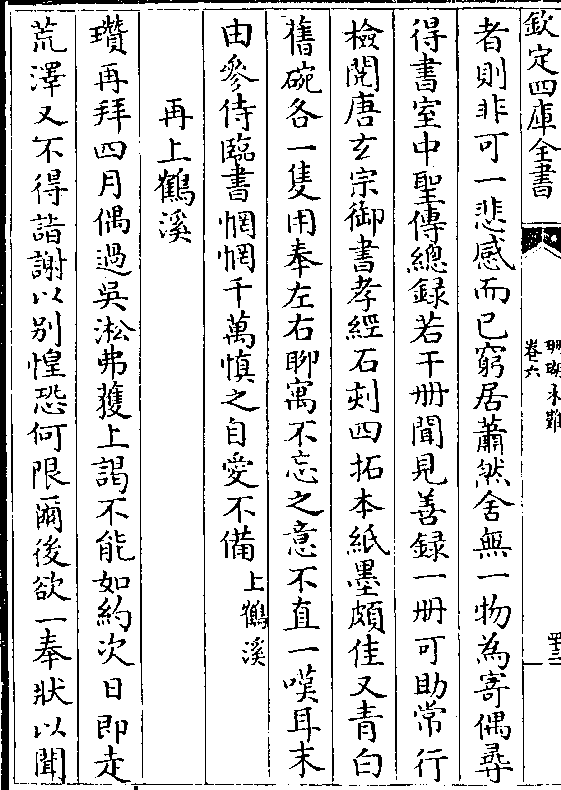 欽定四庫全書
珊瑚木難
卷六
者則非可一悲感而已窮居蕭然舍無一物為寄偶尋
得書室中聖傳總録若干册聞見善録一册可助常行
檢閱唐玄宗御書孝經石刻四拓本紙墨頗佳又青白
舊碗各一隻用奉左右聊寓不忘之意不直一嘆耳末
由參侍臨書惘惘千萬慎之自愛不備上鶴溪
再上鶴溪
瓚再拜四月偶過吳淞弗獲上謁不能如約次日即走
荒澤又不得詣謝以别惶恐何限爾後欲一奉狀以聞